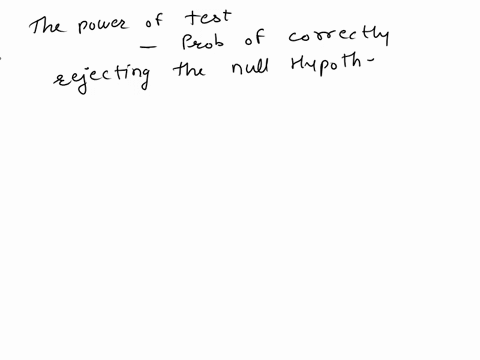 The power of test
— Prob of correctly
rejecting the null Hypoth-